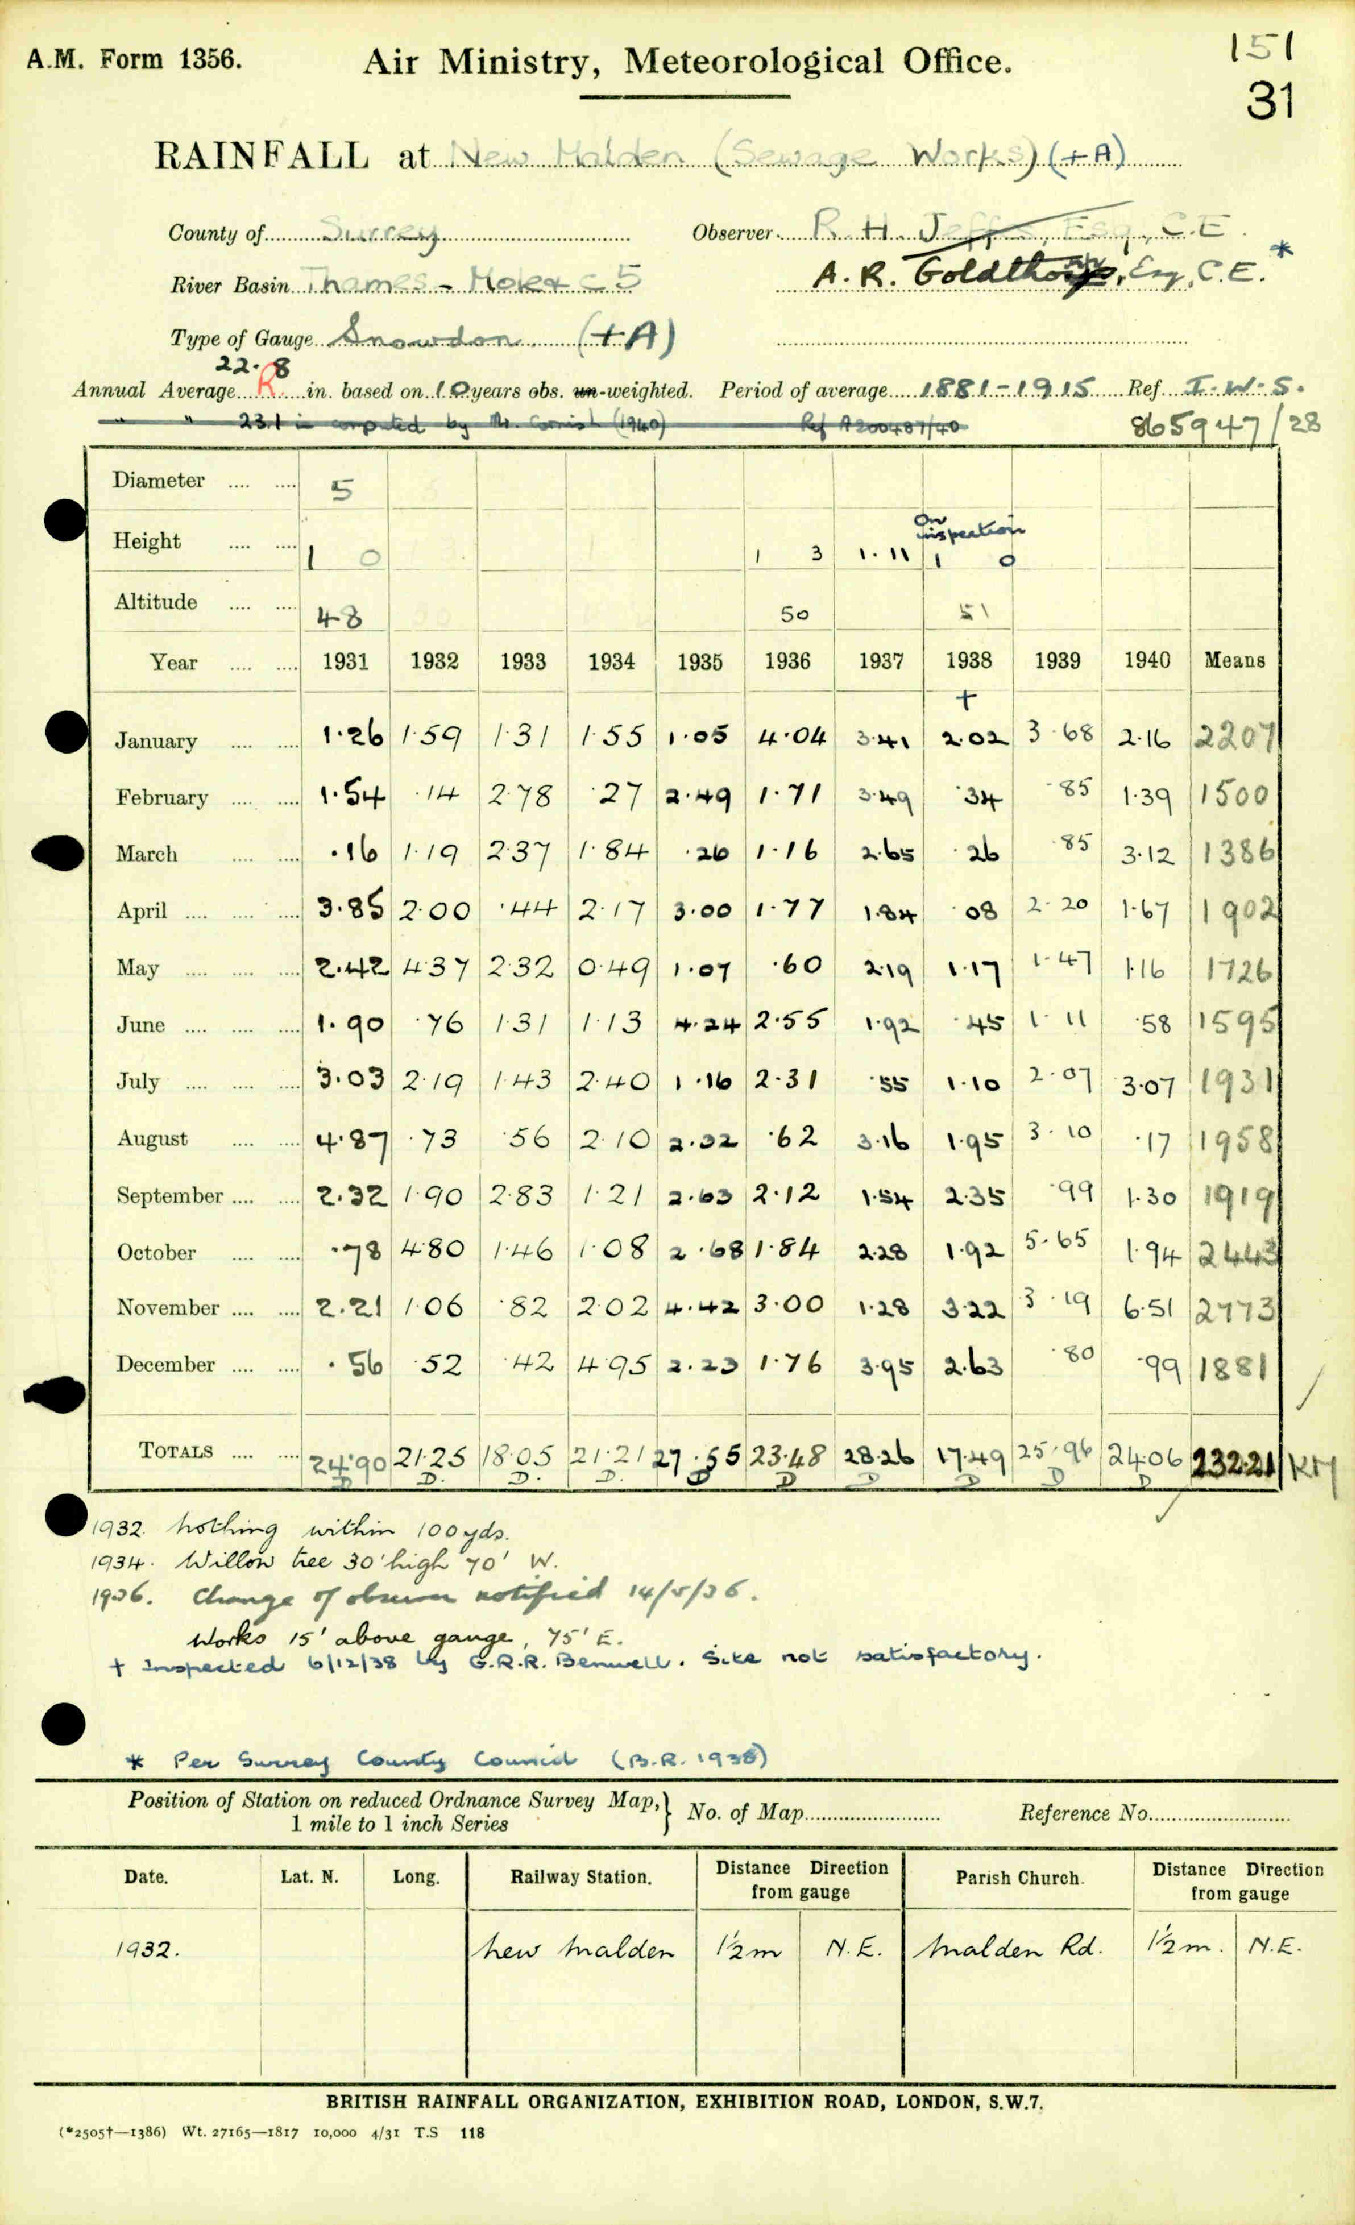 A.M. Form 1356.
Air Ministry, Meteorological Office.
151
31
RAINFALL at New Malden (Sewage Works) (+A)
County of Surrey
Observer R. H. Jeffes, Esq, C.E.
River Basin Thames - Mole & c 5
A. R. Goldthorpe, Esq, C.E. *
Type of Gauge Snowdon (+A)
22.8
Annual Average R in. based on 10 years obs. un-weighted. Period of average 1881-1915 Ref I.W.S.
" " 23.1 in computed by Mr. Cornish (1940) Ref A200487/40
865947/28
Diameter 5
On inspection
Height 1 0 1 3 1.11 1 0
Altitude 48 50 51
Year 1931 1932 1933 1934 1935 1936 1937 1938 1939 1940 Means
+
January 1.26 1.59 1.31 1.55 1.05 4.04 3.41 2.02 3.68 2.16 2207
February 1.54 .14 2.78 .27 2.49 1.71 3.49 .34 .85 1.39 1500
March .16 1.19 2.37 1.84 .26 1.16 2.65 .26 .85 3.12 1386
April 3.85 2.00 .44 2.17 3.00 1.77 1.84 .08 2.20 1.67 1902
May 2.42 4.37 2.32 0.49 1.07 .60 2.19 1.17 1.47 1.16 1726
June 1.90 .76 1.31 1.13 4.24 2.55 1.92 .45 1.11 .58 1595
July 3.03 2.19 1.43 2.40 1.16 2.31 .55 1.10 2.07 3.07 1931
August 4.87 .73 .56 2.10 2.32 .62 3.16 1.95 3.10 .17 1958
September 2.32 1.90 2.83 1.21 2.63 2.12 1.54 2.35 .99 1.30 1919
October .78 4.80 1.46 1.08 2.68 1.84 2.28 1.92 5.65 1.94 2443
November 2.21 1.06 .82 2.02 4.42 3.00 1.28 3.22 3.19 6.51 2773
December .56 .52 .42 4.95 2.23 1.76 3.95 2.63 .80 .99 1881
TOTALS 24.90 21.25 18.05 21.21 27.55 23.48 28.26 17.49 25.96 24.06 232.21 KM
D D. D. D. D D D D D D
1932. Nothing within 100 yds.
1934. Willow tree 30' high 70' W.
1936. Change of observer notified 14/5/36.
Works 15' above gauge, 75' E.
+ Inspected 6/12/38 by G.R.R. Benwell. Site not satisfactory.
* Per Surrey County Council (B.R. 1938)
Position of Station on reduced Ordnance Survey Map, 1 mile to 1 inch Series } No. of Map Reference No.
Date. Lat. N. Long. Railway Station. Distance Direction from gauge Parish Church. Distance Direction from gauge
1932. New Malden 1½m N.E. Malden Rd. 1½m. N.E.
BRITISH RAINFALL ORGANIZATION, EXHIBITION ROAD, LONDON, S.W.7.
(*2505†—1386) Wt. 27165—1817 10,000 4/31 T.S 118